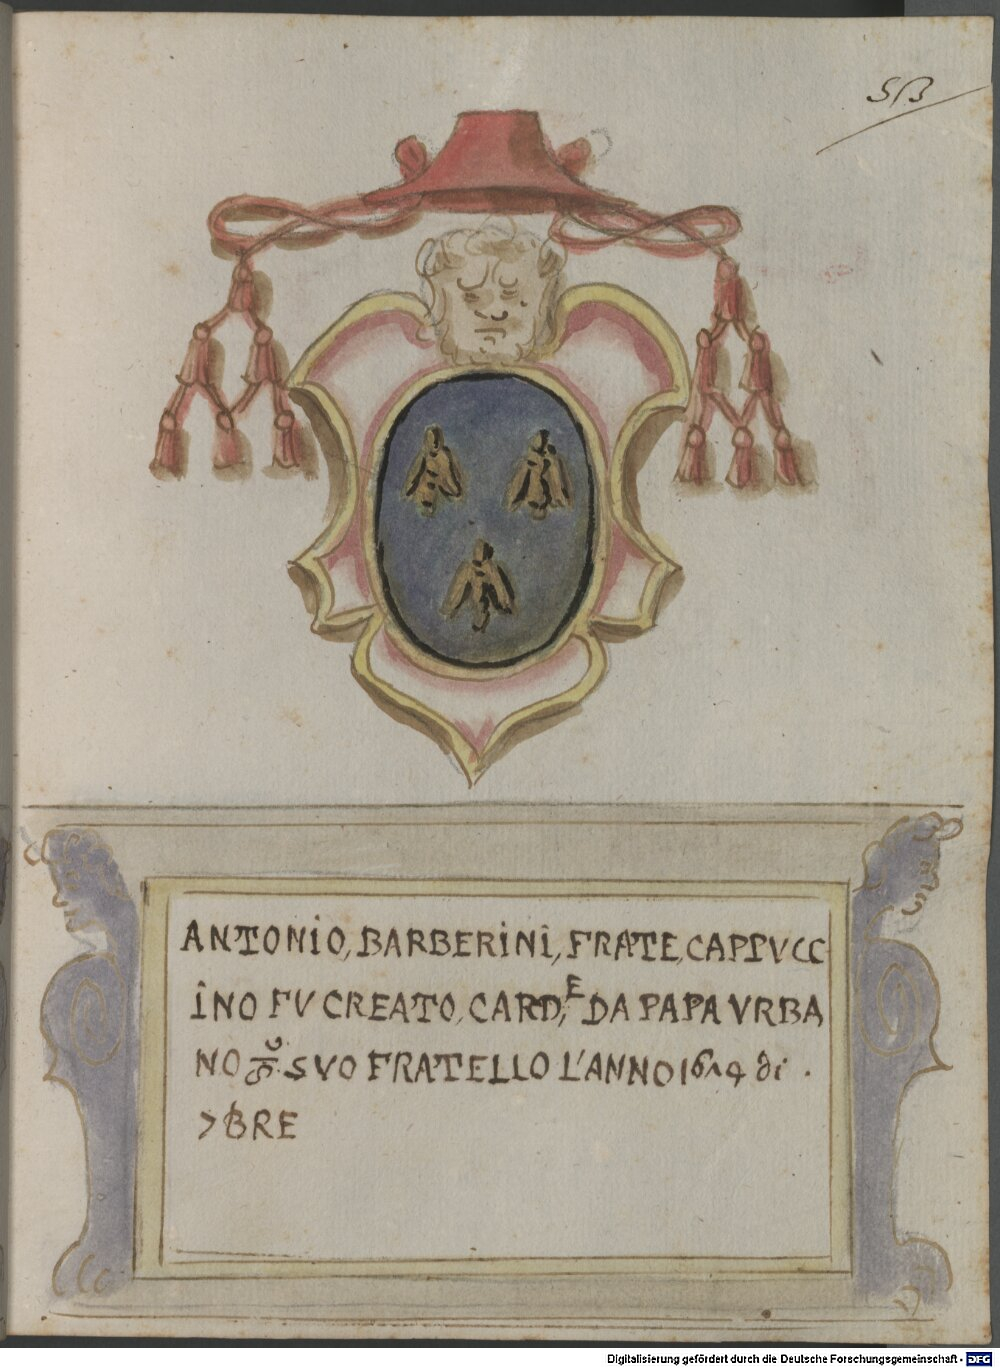 ANTONIO, BARBERINI, FRATE, CAPPUCC
INO FU CREATO, CARD,E DA PAPA VRBA
NO SVO FRATELLO L'ANNO 1624 di .
7BRE
Digitalisierung gefördert durch die Deutsche Forschungsgemeinschaft - DFG